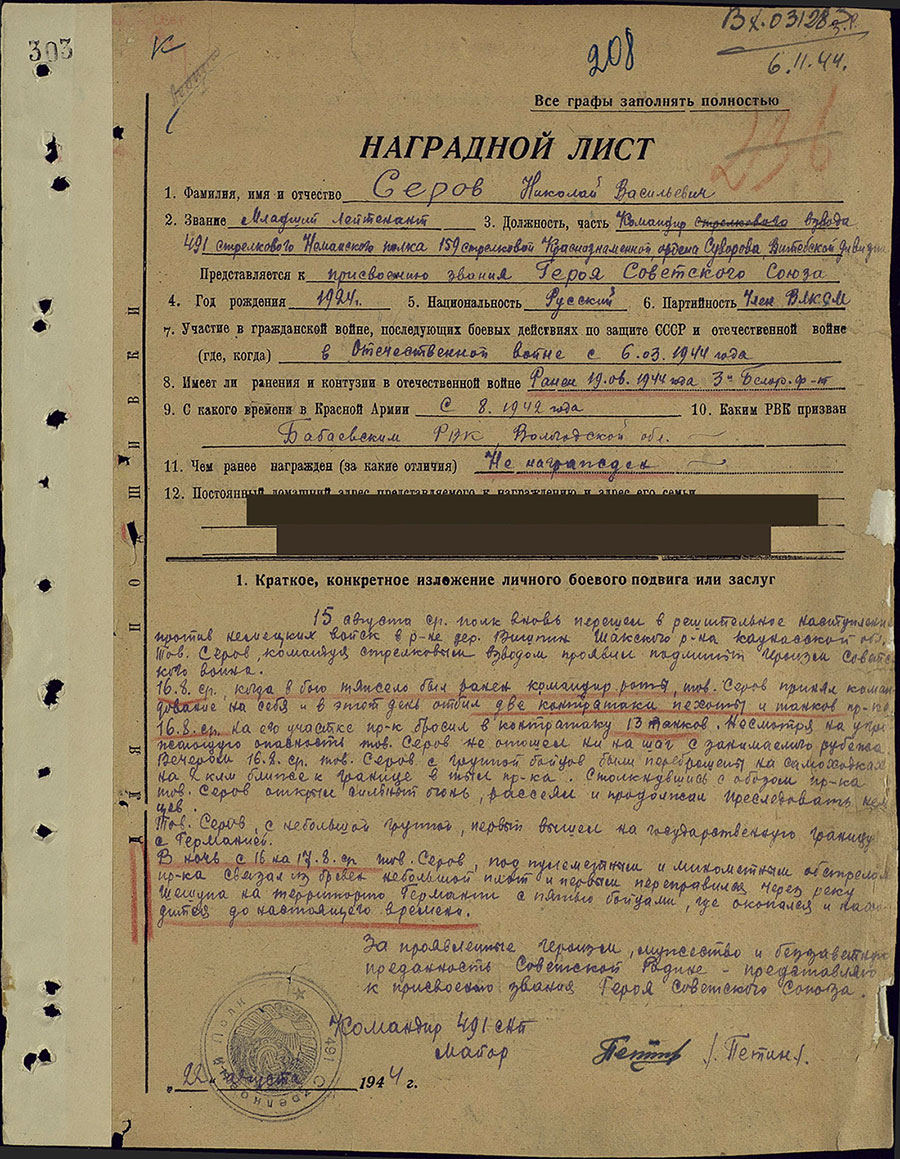 303
К
208
Вх. 03128
6.11.44.
Все графы заполнять полностью
236
НАГРАДНОЙ ЛИСТ
1. Фамилия, имя и отчество Серов Николай Васильевич
2. Звание Младший лейтенант 3. Должность, часть Командир стрелкового взвода
491 стрелкового Неманского полка 159 стрелковой Краснознаменной, ордена Суворова, Витебской дивизии
Представляется к присвоению звания Героя Советского Союза
4. Год рождения 1924г. 5. Национальность Русский 6. Партийность Член ВЛКСМ
7. Участие в гражданской войне, последующих боевых действиях по защите СССР и отечественной войне
(где, когда) в Отечественной войне с 6.03.1944 года
8. Имеет ли ранения и контузии в отечественной войне Ранен 19.06.1944 года 3й Белор. ф-т
9. С какого времени в Красной Армии С 8.1942 года 10. Каким РВК призван
Бабаевским РВК, Вологодской обл.
11. Чем ранее награжден (за какие отличия) Не награжден
12. Постоянный домашний адрес представляемого к награждению и адрес его семьи
ДЛЯ ПОДШИВКИ
1. Краткое, конкретное изложение личного боевого подвига или заслуг
15 августа ср. полк вновь перешел в решительное наступление
против немецких войск в р-не дер. Шакского р-на каунасской обл.
Тов. Серов, командуя стрелковым взводом проявил подлинный героизм Советс-
кого воина.
16.8.ср., когда в бою тяжело был ранен командир роты, тов. Серов принял коман-
дование на себя и в этот день отбил две контратаки пехоты и танков пр-ка.
16.8.ср. на его участке пр-к бросил в контратаку 13 танков. Несмотря на угро-
жающую опасность тов. Серов не отошел ни на шаг с занимаемого рубежа.
Вечером 16.8.ср. тов. Серов с группой бойцов были переброшены на самоходках
на 2 клм ближе к границе в тыл пр-ка. Столкнувшись с обозом пр-ка
тов. Серов открыл сильный огонь, рассеял и продолжал преследовать нем-
цев.
Тов. Серов, с небольшой группой, первый вышел на государственную границу
с Германией.
В ночь с 16 на 17.8.ср. тов. Серов, под пулеметным и минометным обстрелом
пр-ка связал из бревен небольшой плот и первым переправился через реку
Шешупа на территорию Германии с пятью бойцами, где окопался и нахо-
дится до настоящего времени.
За проявленные героизм, мужество и беззаветную
преданность Советской Родине - представляю
к присвоению звания Героя Советского Союза.
Командир 491 сп
Майор Петин /Петин/.
491 Стрелковый Полк
"22" августа 1944 г.